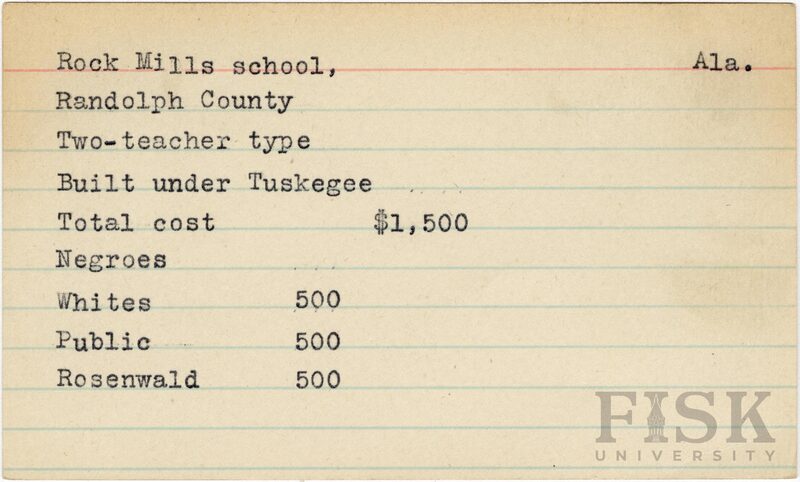 Rock Mills school, Ala.
Randolph County
Two-teacher type
Built under Tuskegee
Total cost $1,500
Negroes
Whites 500
Public 500
Rosenwald 500
FISK
UNIVERSITY